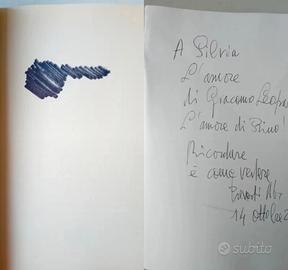 A Silvia
L'amore
di Giacomo Leopar
L'amore di
Ricordare
è come vedere
14 ottobre 2
subito